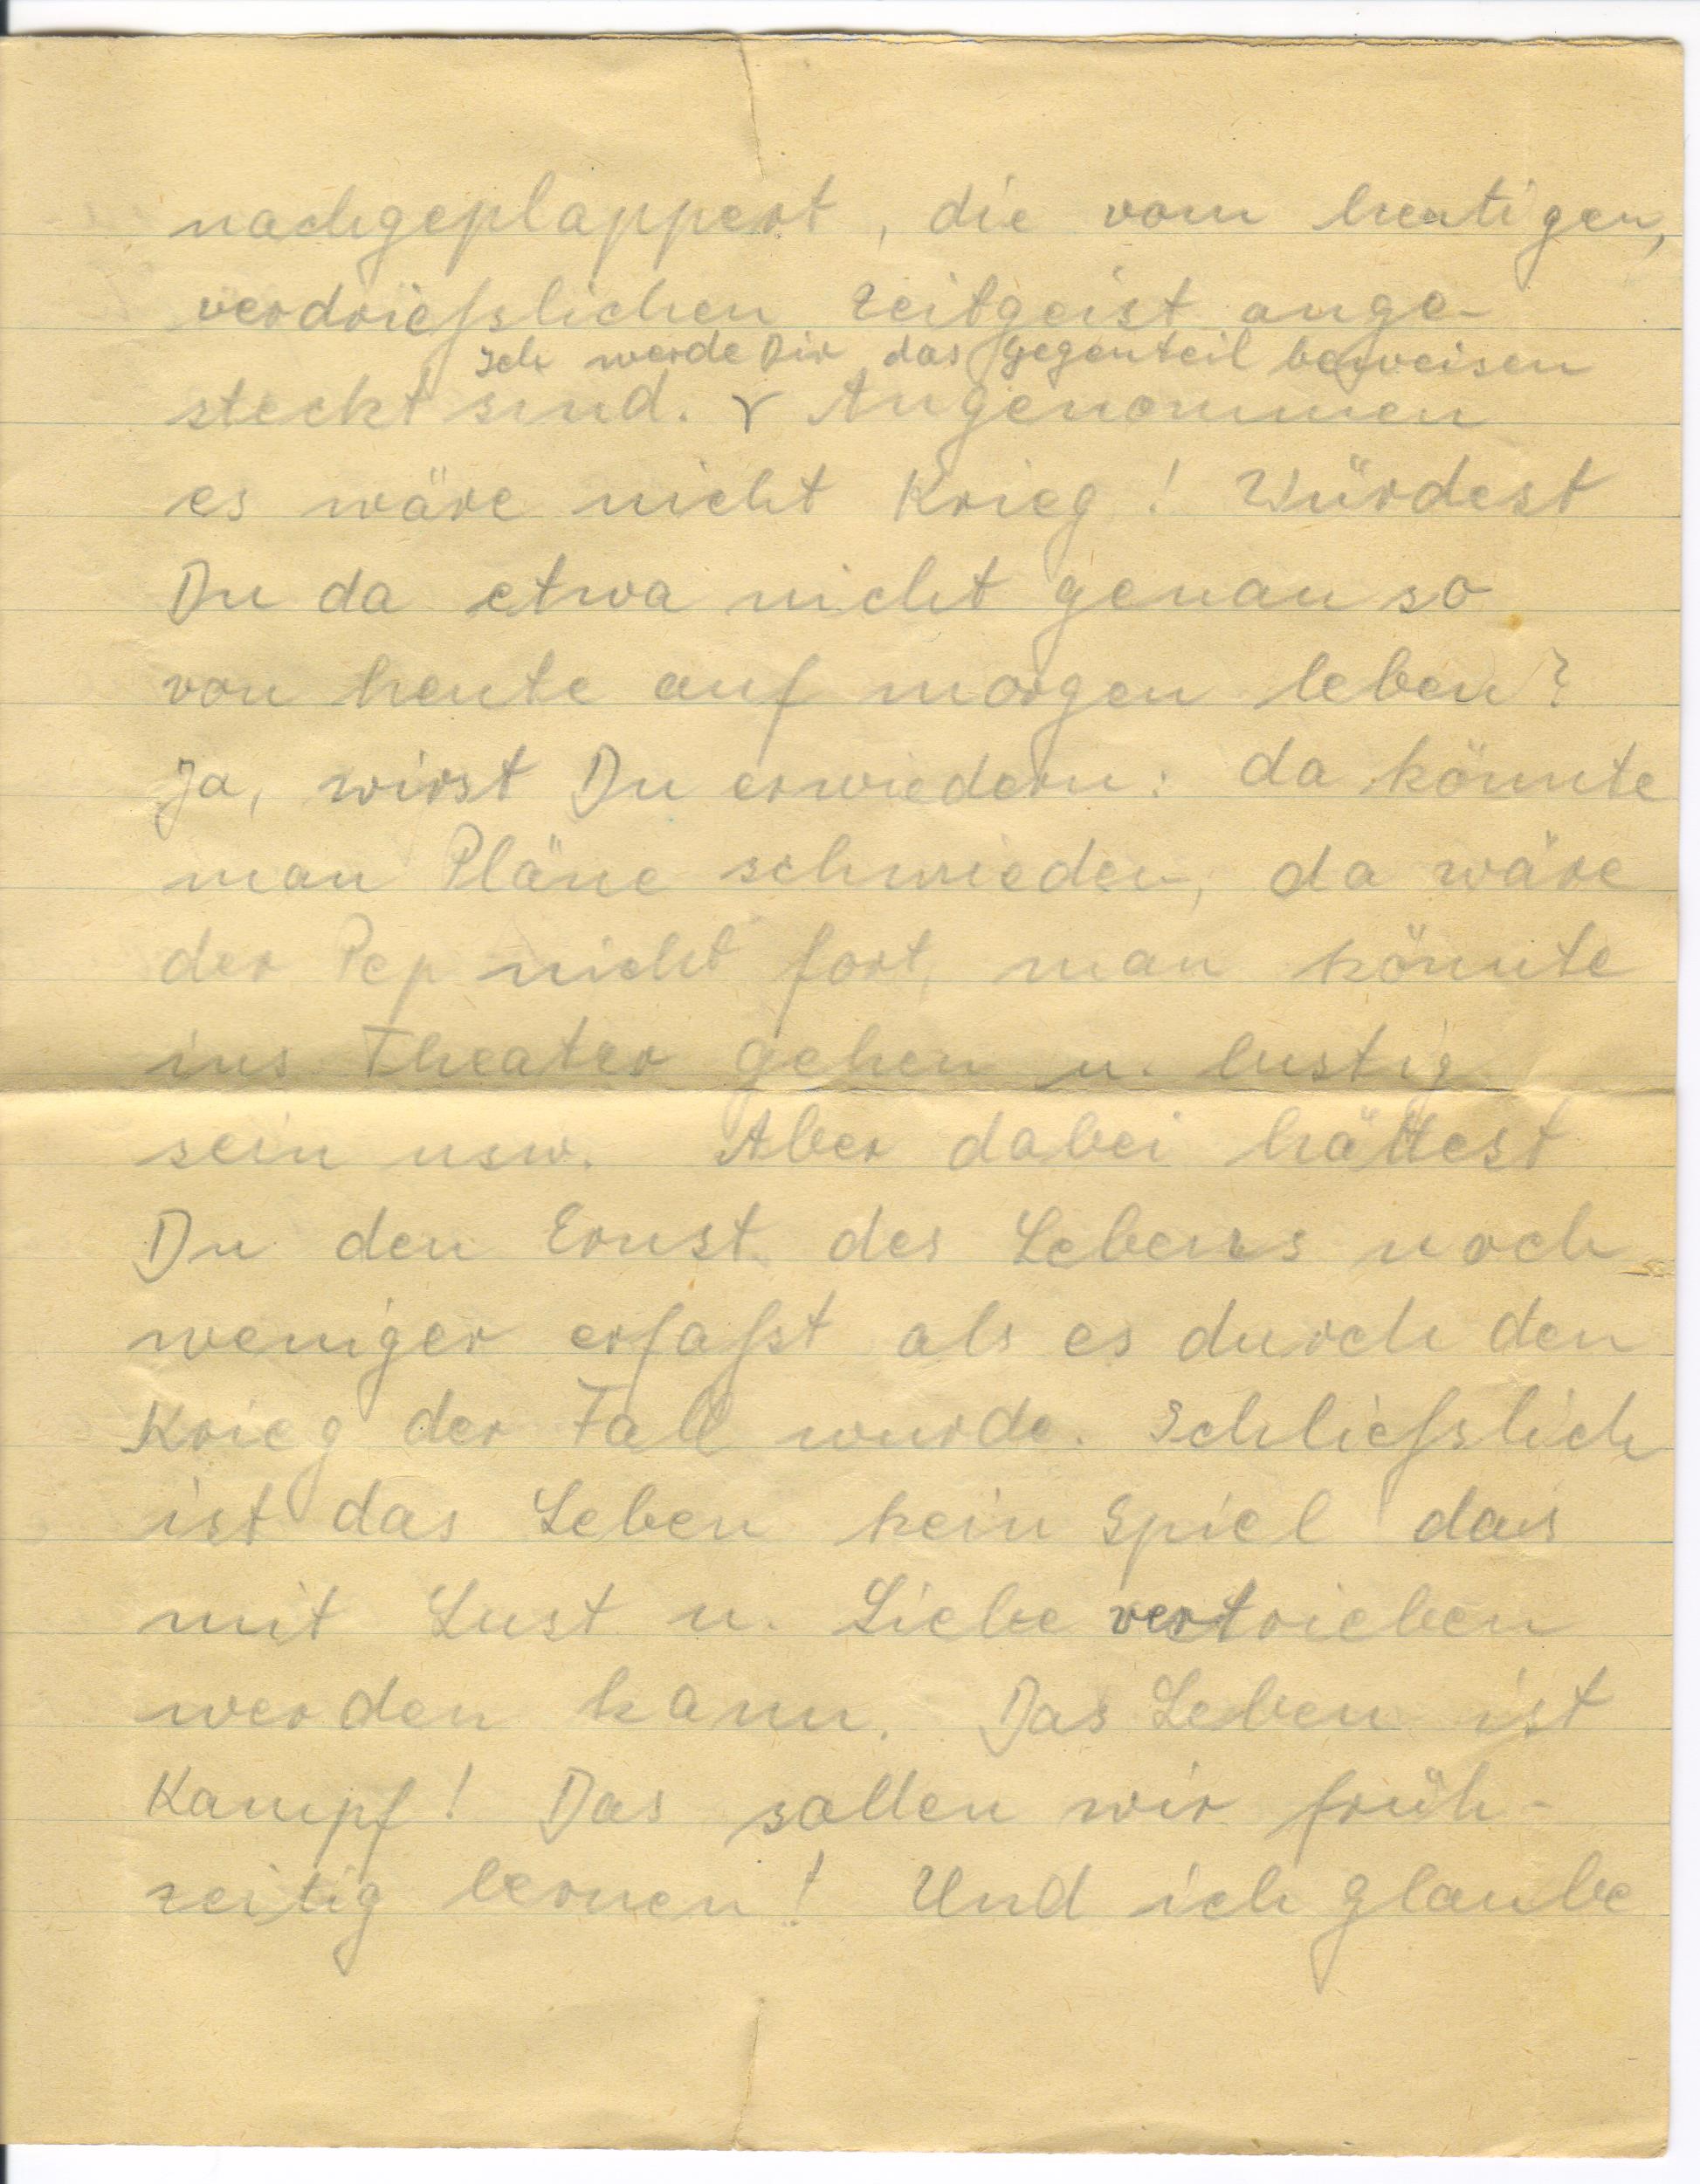 nachgeplappert, die vom heutigen,
verdriesslichen Zeitgeist ange-
Ich werde Dir das Gegenteil beweisen
steckt sind. Angenommen
es wäre nicht Krieg! Würdest
Du da etwa nicht genau so
von heute auf morgen leben?
Ja, wirst Du erwiedern: da könnte
man Pläne schmieden, da wäre
der Pep nicht fort, man könnte
ins Theater gehen u. lustig
sein usw. Aber dabei hättest
Du den Ernst des Lebens noch
weniger erfasst als es durch den
Krieg der Fall wurde. Schliesslich
ist das Leben kein Spiel das
mit Lust u. Liebe vertrieben
werden kann. Das Leben ist
Kampf! Das sollen wir früh-
zeitig lernen! Und ich glaube